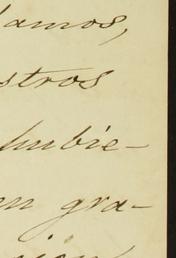 lamos,
stros
hubie-
en gra-